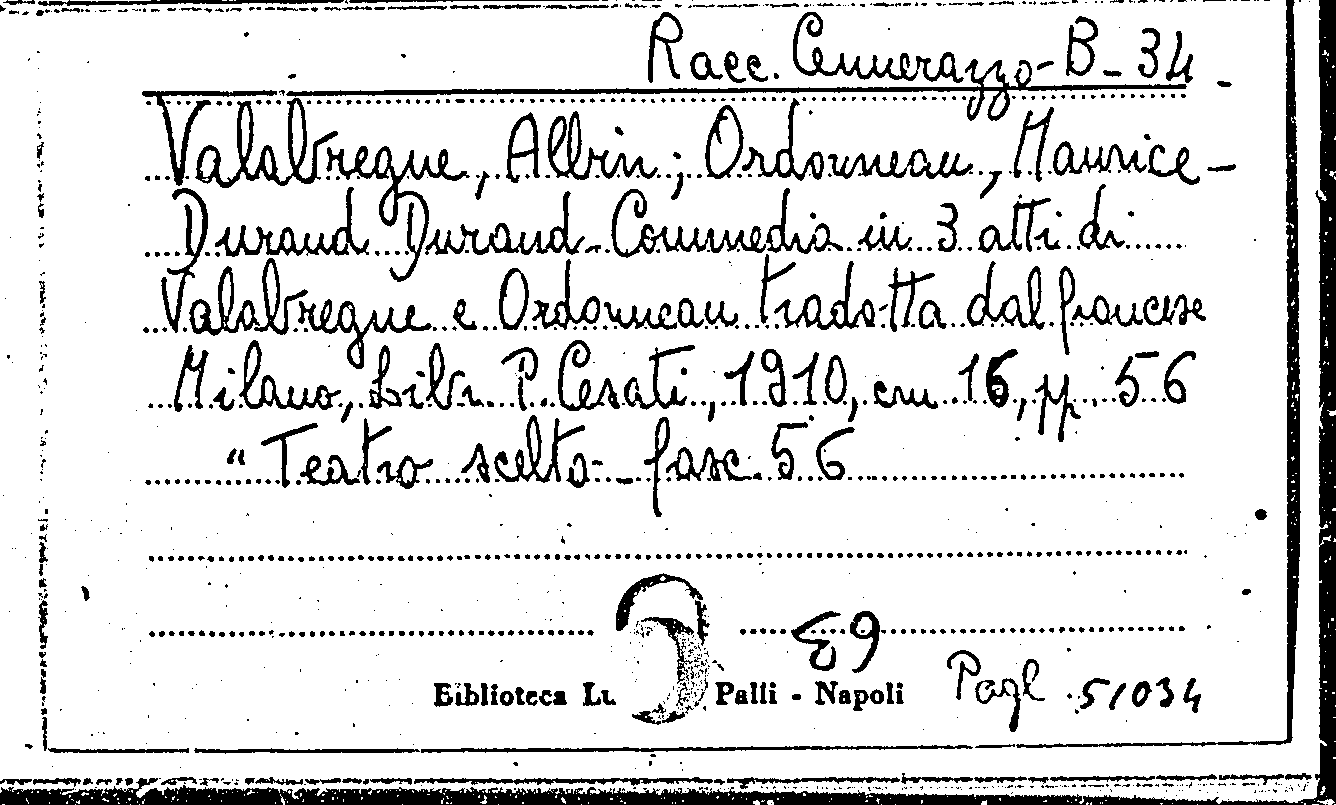 Racc. Cennerazzo - B - 34 -
Valabregue, Albin; Ordonneau, Maurice -
Durand Durand - Commedia in 3 atti di
Valabregue e Ordonneau tradotta dal francese
Milano, Libr. P. Cesati, 1910, cm 16, pp. 56
" Teatro scelto - fasc. 56
E9
Biblioteca Lu Palli - Napoli Pagl 51034